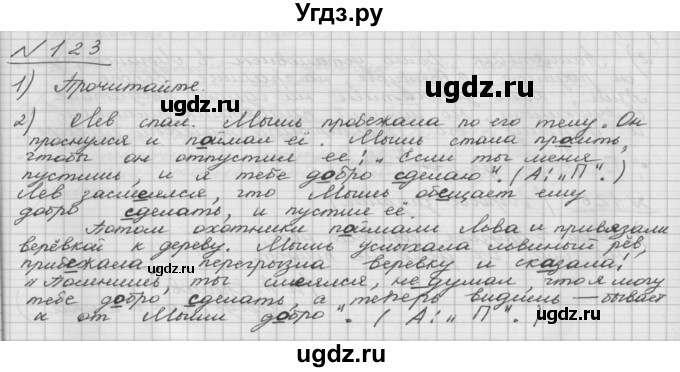 Угдз.ру
N 123
1) Прочитайте.
ugdz.ru
ugdz.ru
2) Лев спал. Мышь пробежала по его телу. Он
проснулся и поймал её. Мышь стала просить,
чтобы он отпустил её: „Если ты меня
пустишь, и я тебе добро сделаю". (А: „П".)
Лев засмеялся, что Мышь обещает ему
добро сделать, и пустил её.
ugdz.ru
ugdz.ru
Потом охотники поймали Льва и привязали
верёвкой к дереву. Мышь услыхала львиный рёв,
прибежала перегрызла верёвку и сказала:
ugdz.ru
„Помнишь, ты смеялся, не думал, что я могу
тебе добро сделать, а теперь видишь – бывает
и от Мыши добро". (А: „П".)
ugdz.ru
ugdz.ru